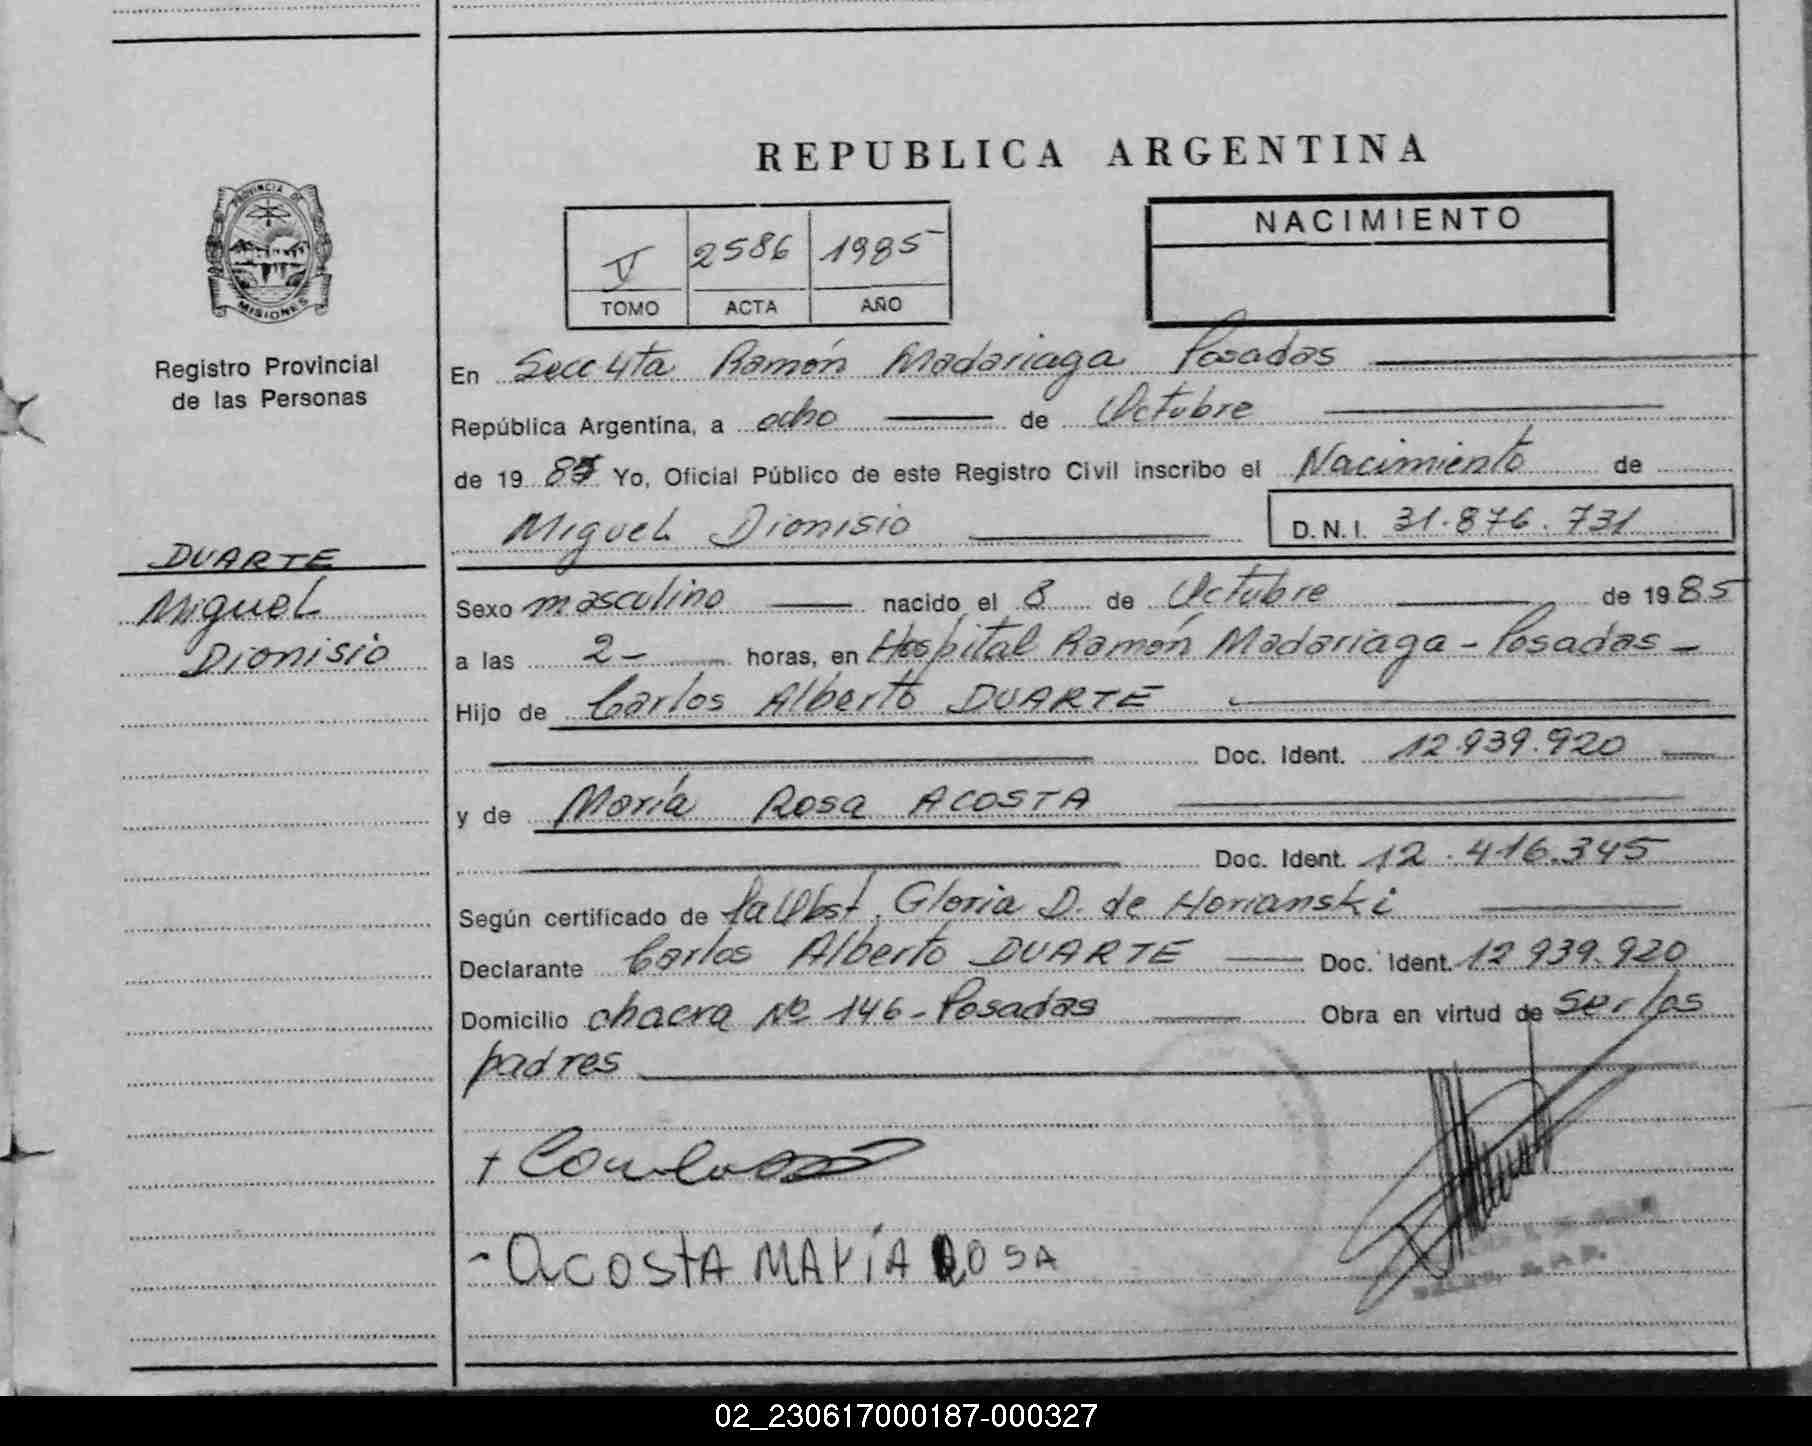 REPUBLICA ARGENTINA
PROVINCIA DE
MISIONES
Registro Provincial
de las Personas
V 2586 1985
TOMO ACTA AÑO
NACIMIENTO
En Secc 4ta Ramón Madariaga Posadas
República Argentina, a ocho de Octubre
de 1985 Yo, Oficial Público de este Registro Civil inscribo el Nacimiento de
Miguel Dionisio D.N.I. 31.876.731
DUARTE
Miguel
Dionisio
Sexo masculino nacido el 8 de Octubre de 1985
a las 2- horas, en Hospital Ramón Madariaga - Posadas -
Hijo de Carlos Alberto DUARTE
Doc. Ident. 12.939.920
y de María Rosa ACOSTA
Doc. Ident. 12.416.345
Según certificado de la Obst. Gloria D. de Horianski
Declarante Carlos Alberto DUARTE Doc. Ident. 12.939.920
Domicilio chacra Nº 146 - Posadas Obra en virtud de ser los
padres
- ACOSTA MARÍA ROSA
02_230617000187-000327